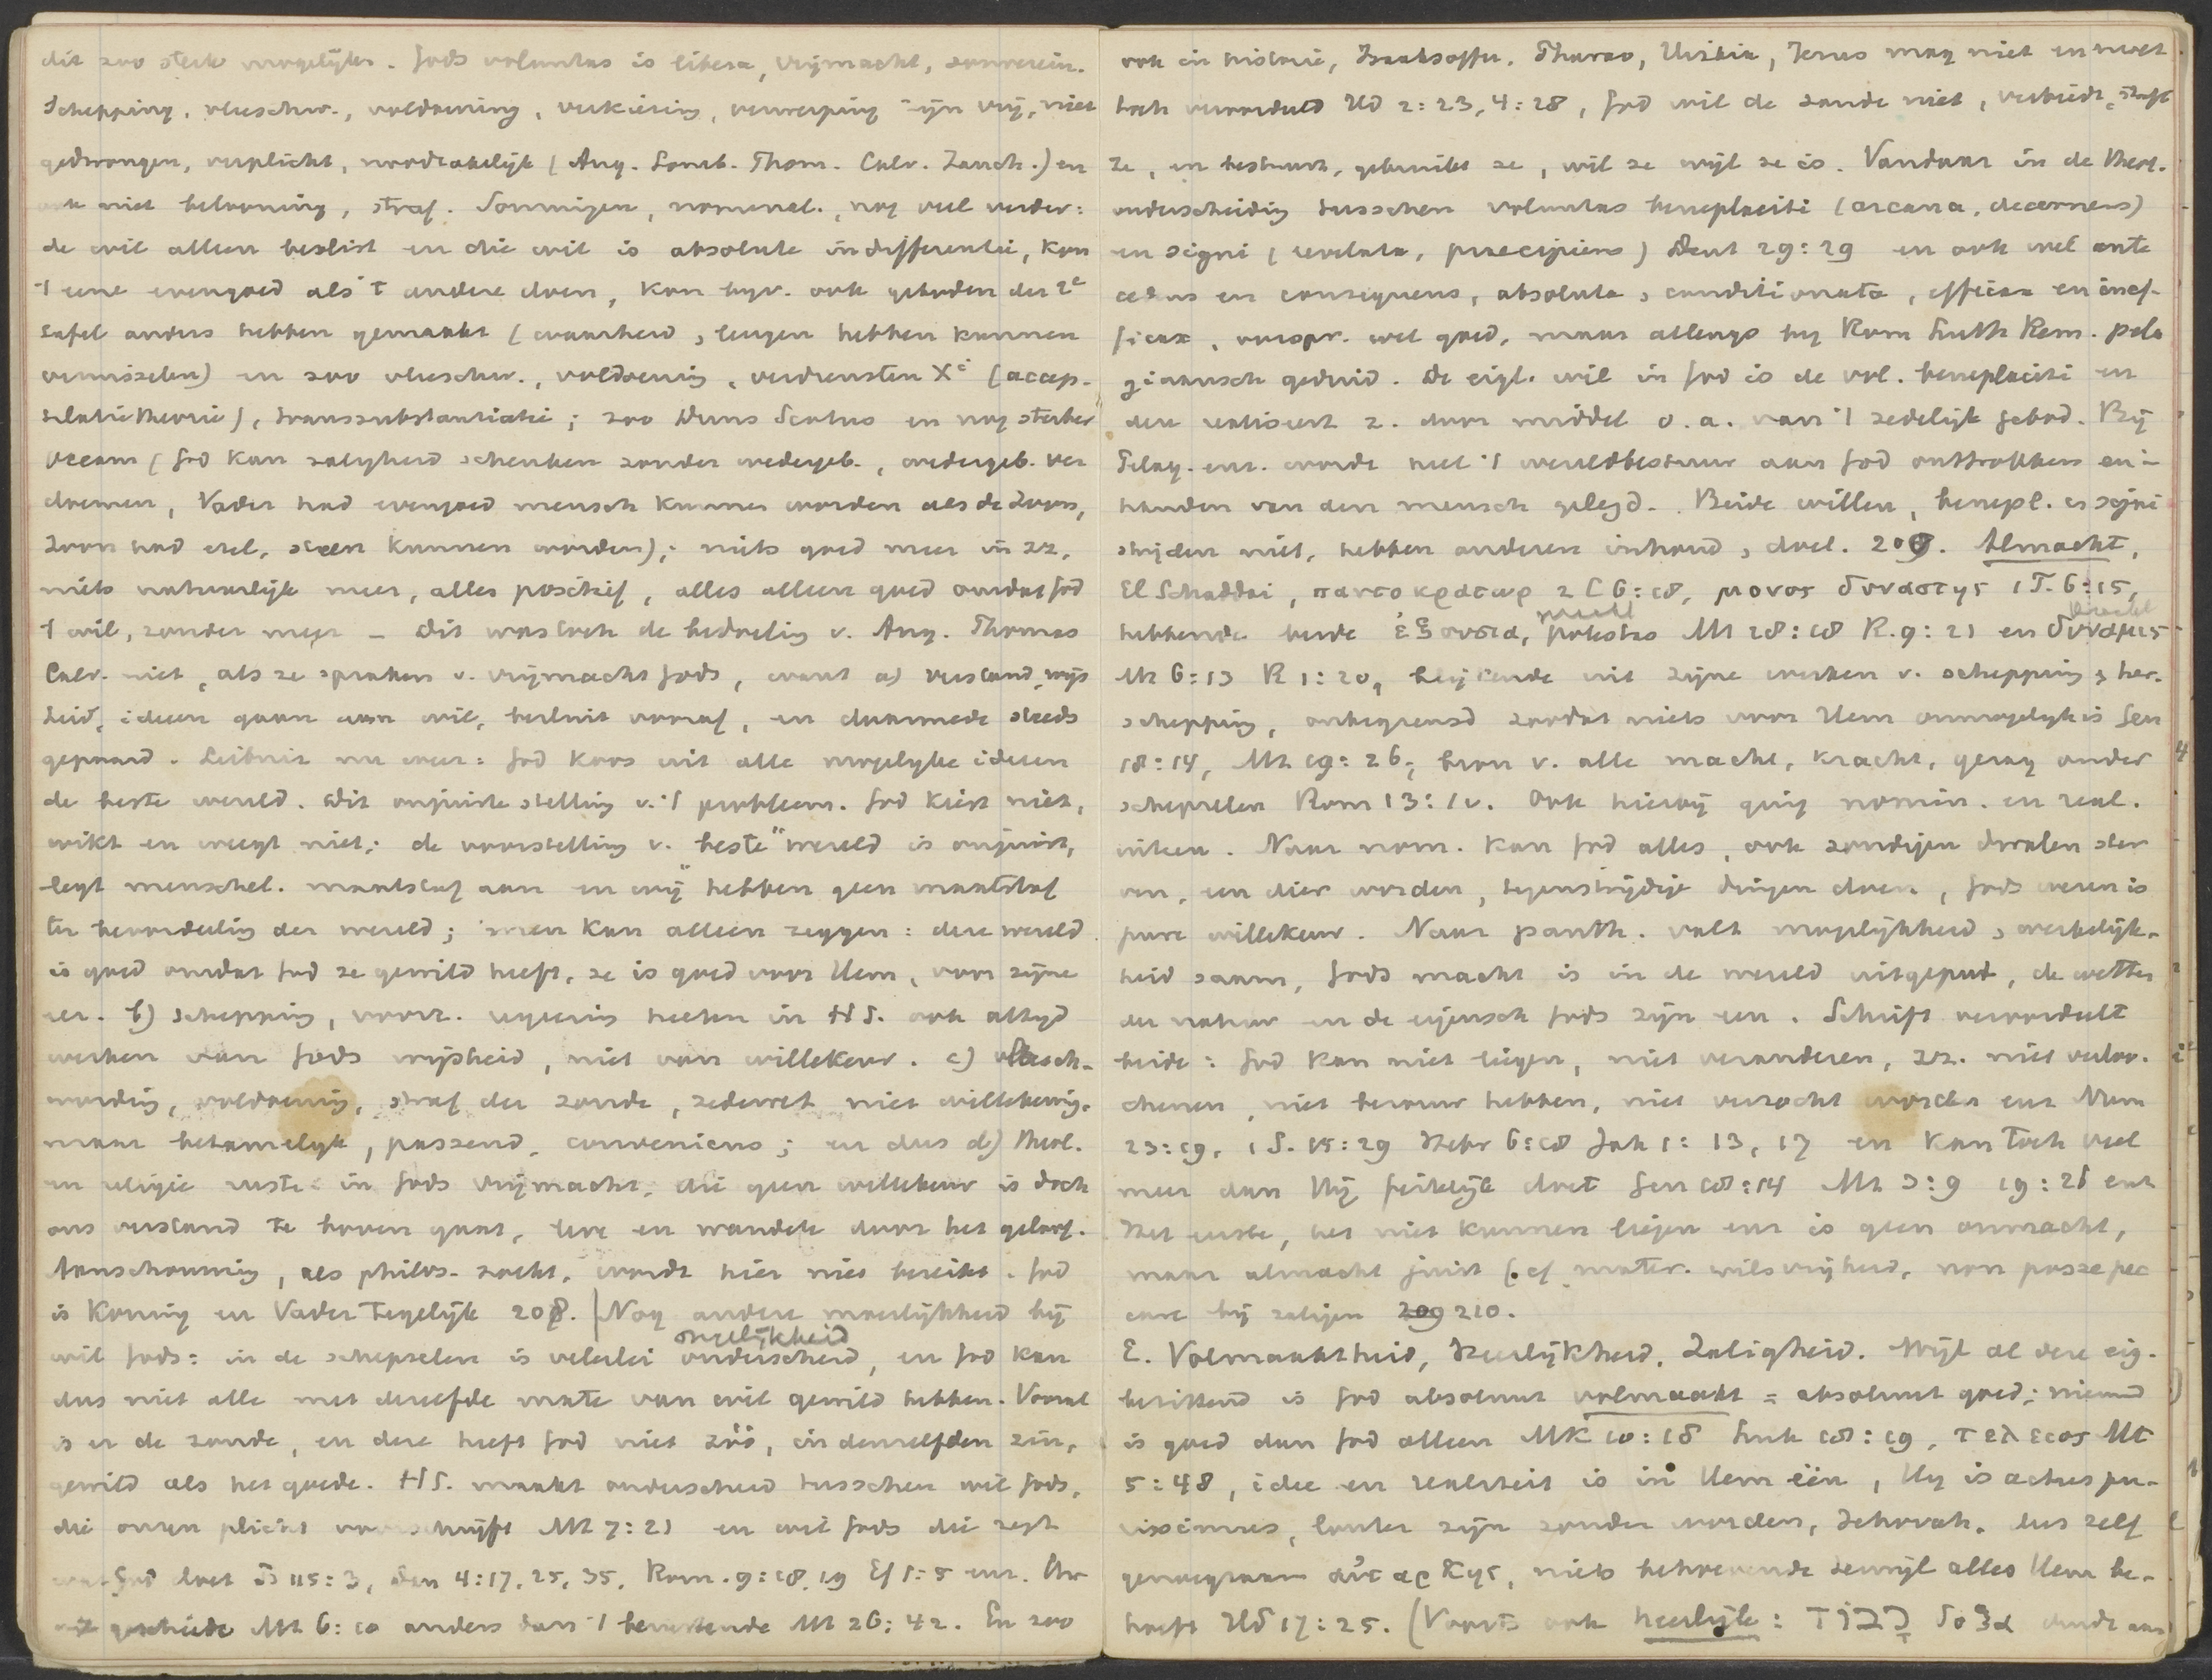 dit zoo sterk mogelijk. Gods voluntas is libera, vrijmacht, souverein.
Schepping, vleeschw., voldoening, verkiezing, verwerping zijn vrij, niet
gedwongen, verplicht, noodzakelijk (Aug. Lomb. Thom. Calv. Zanch.) en
ook niet belooning, straf. Sommigen, nominal., nog veel verder:
de wil alleen beslist en die wil is absolute indifferentie, kon
't eene evengoed als 't andere doen, kon bijv. ook geboden der 2e
tafel anders hebben gemaakt (waarheid, leugen hebben kunnen
verwisselen) en zoo vleeschw., voldoening, verdiensten Xi (accep-
tilatietheorie), transsubstantiatie; zoo Duns Scotus en nog sterker
Occam (God kan zaligheid schenken zonder wedergeb., wedergeb. ver
doemen, Vader had evengoed mensch kunnen worden als de Zoon,
Zoon had ezel, steen kunnen worden); niets goed meer in zz,
niets natuurlijk meer, alles positief, alles alleen goed omdat God
't wil, zonder meer – Dit was toch de bedoeling v. Aug. Thomas
Calv. niet, als ze spraken v. vrijmacht Gods, want a) verstand, wijs
heid, ideen gaan aan wil, besluit vooraf, en daarmede steeds
gepaard. Leibniz nu weer: God koos uit alle mogelyke ideeen
de beste wereld. Dit onjuiste stelling v. 't probleem. God kiest niet,
wikt en weegt niet; de voorstelling v. "beste" wereld is onjuist,
legt menschel. maatstaf aan en wij hebben geen maatstaf
ter beoordeeling der wereld; men kan alleen zeggen: deze wereld
is goed omdat God ze gewild heeft, ze is goed voor Hem, voor zijne
eer. b) schepping, voorz. regeering heeten in HS. ook altijd
werken van Gods wijsheid, niet van willekeur. c) vleesch-
wording, voldoening, straf der zonde, zedewet niet willekeurig.
maar betamelyk, passend, conveniens; en dus d) theol.
en religie rusten in Gods vrijmacht, die geen willekeur is doch
ons verstand te boven gaat, leve en wandele door het geloof.
Aanschouwing, als philos. zoekt, wordt hier niet bereikt. God
is Koning en Vader tegelijk 208. | Nog andere moeilijkheid bij
ongelijkheid
wil Gods: in de schepselen is velerlei onderscheid, en God kan
dus niet alle met dezelfde mate van wil gewild hebben. Vooral
is er de zonde, en deze heeft God niet zóó, in denzelfden zin,
gewild als het goede. HS. maakt onderscheid tusschen wil Gods,
die onzen plicht voorschrijft Mt 7:21 en wil Gods die zegt
wat God doet Ps 115:3, Dan 4:17, 25, 35, Rom. 9:18, 19 Ef 1:5 enz. Uw
wil geschiede Mt 6:10 anders dan 't berustende Mt 26:42. En zoo
ook in historie, Izaksoffer, Pharao, Hizkia, Jezus mag niet en moet
toch veroordeeld Hd 2:23, 4:28, God wil de zonde niet, verbiedt, straft
ze, en bestuurt, gebruikt ze, wil ze wijl ze is. Vandaar in de theol.
onderscheiding tusschen voluntas beneplaciti (arcana, decernens)
en signi (revelata, praecipiens) Deut 29:29 en ook wel ante
cedens en consequens, absoluta, conditionata, efficax en inef-
ficax, oorspr. wel goed, maar allengs by Rom Luth Rem. pela
giaansch geduid. De eigl. wil in God is de vol. beneplaciti en
deze realiseert z. door middel o.a. van 't zedelijk gebod. Bij
Pelag. enz. wordt heel 't wereldbestuur aan God onttrokken en in
handen van den mensch gelegd. Beide willen, benepl. en signi
strijden niet, hebben anderen inhoud, doel. 209. Almacht,
El Schaddai, παντοκρατωρ 2 C 6:18, μονος δυναστης 1 T. 6:15,
macht kracht
hebbende beide ἐξουσια, potestas Mt 28:18 R. 9:21 en δυναμις
Mt 6:13 R 1:20, blijkende uit zijne werken v. schepping & her-
schepping, onbegrensd zoodat niets voor Hem onmogelyk is Gen
18:14, Mt 19:26, bron v. alle macht, kracht, gezag onder
schepselen Rom 13:1v. Ook hierbij ging nomin. en real.
uiteen. Naar nom. kan God alles, ook zondigen dwalen ster
ven, een dier worden, tegenstrijdige dingen doen, Gods wezen is
pure willekeur. Naar panth. valt mogelijkheid, werkelijk-
heid saam, Gods macht is in de wereld uitgeput, de wetten
der natuur en de eigensch Gods zijn een. Schrift veroordeelt
beide: God kan niet liegen, niet veranderen, zz. niet verloo-
chenen, niet berouw hebben, niet verzocht worden enz Num
23:19, 1 S. 15:29 Hebr 6:18 Jak 1:13, 17 en kan toch veel
meer dan Hij feitelijk doet Gen 18:14 Mt 3:9 19:26 enz
Het eerste, het niet kunnen liegen enz is geen onmacht,
maar almacht juist (cf mater. wilsvrijheid, non posse pec
care bij zaligen 209 210.
E. Volmaaktheid, Heerlijkheid, Zaligheid. Wijl al deze eig.
bezittend is God absoluut volmaakt = absoluut goed; niemand
is goed dan God alleen Mk 10:18 Luk 18:19, τελειος Mt
5:48, idee en realiteit is in Hem één, Hy is actus pu-
rissimus, louter zijn zonder worden, Jehovah, dus zelf
genoegzaam αὐταρκης, niets behoevende dewijl alles Hem be-
hoeft Hd 17:25. (Voorts ook heerlijk: כבוד δοξα